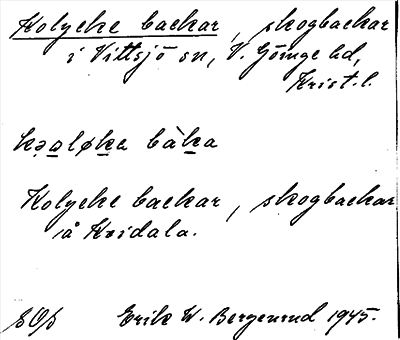 Kolycke backar, skogbackar
i Vittsjö sn, V. Göinge hd,
Krist. l.
kəaløka bàka
Kolycke backar, skogbackar
å Hvidala.
SOS Erik W. Bergenrud 1945.